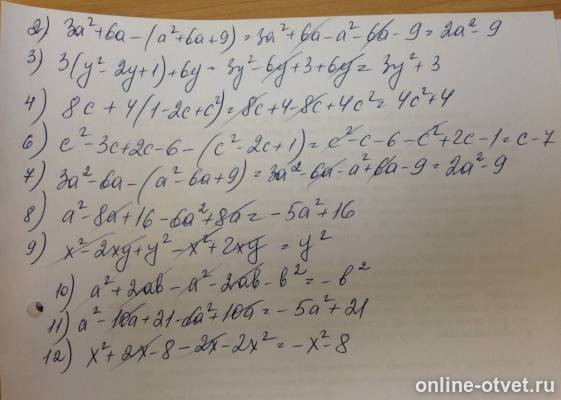 2) 3a²+6a-(a²+6a+9)=3a²+6a-a²-6a-9=2a²-9
3) 3(y²-2y+1)+6y=3y²-6y+3+6y=3y²+3
4) 8c+4(1-2c+c²)=8c+4-8c+4c²=4c²+4
6) c²-3c+2c-6-(c²-2c+1)=c²-c-6-c²+2c-1=c-7
7) 3a²-6a-(a²-6a+9)=3a²-6a-a²+6a-9=2a²-9
8) a²-8a+16-6a²+8a=-5a²+16
9) x²-2xy+y²-x²+2xy=y²
10) a²+2ab-a²-2ab-b²=-b²
11) a²-10a+21-6a²+10a=-5a²+21
12) x²+2x-8-2x-2x²=-x²-8
online-otvet.ru